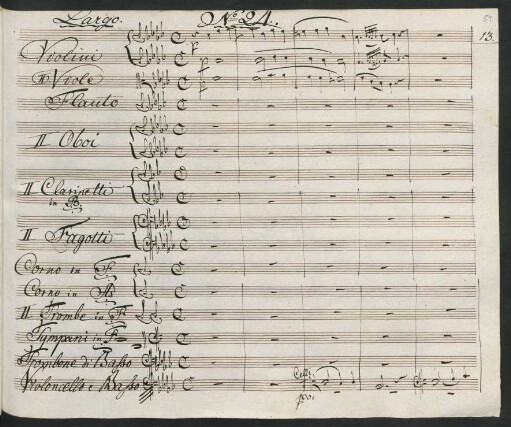 Largo. No. 24.
13.
Violini
II Viole
Flauto
II Oboi
II Clarinetti
in B.
II Fagotti
Corno in F
Corno in As
II Trombe in F
Tympani in F
Trombone di Basso
Violoncello e Basso
Celli
po.